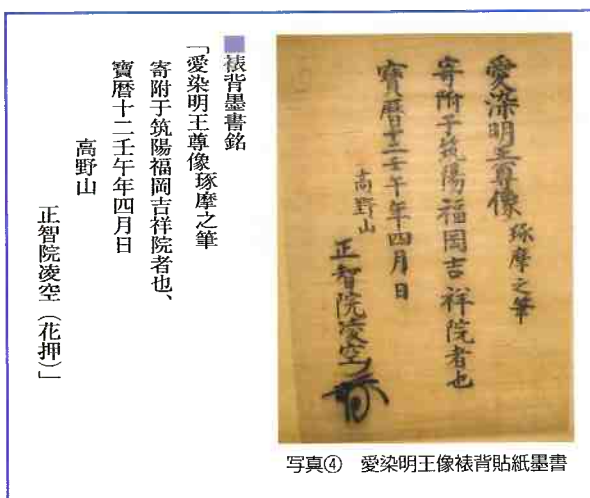 愛染明王尊像 琢摩之筆
寄附于筑陽福岡吉祥院者也
寶暦十二壬午年四月日
高野山
正智院凌空
写真④ 愛染明王像裱背貼紙墨書
■裱背墨書銘
「愛染明王尊像琢摩之筆
寄附于筑陽福岡吉祥院者也、
寶暦十二壬午年四月日
高野山
正智院凌空(花押)」